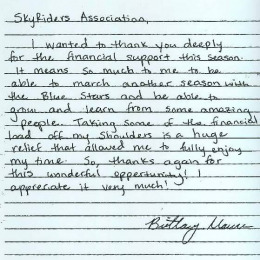 SkyRiders Association,
I wanted to thank you deeply
for the financial support this season.
It means so much to me to be
able to march another season with
the Blue Stars and be able to
grow and learn from some amazing
people. Taking some of the financial
load off my shoulders is a huge
relief that allowed me to fully enjoy
my time. So, thanks again for
this wonderful oppertunity! I
appreciate it very much!
Brittany